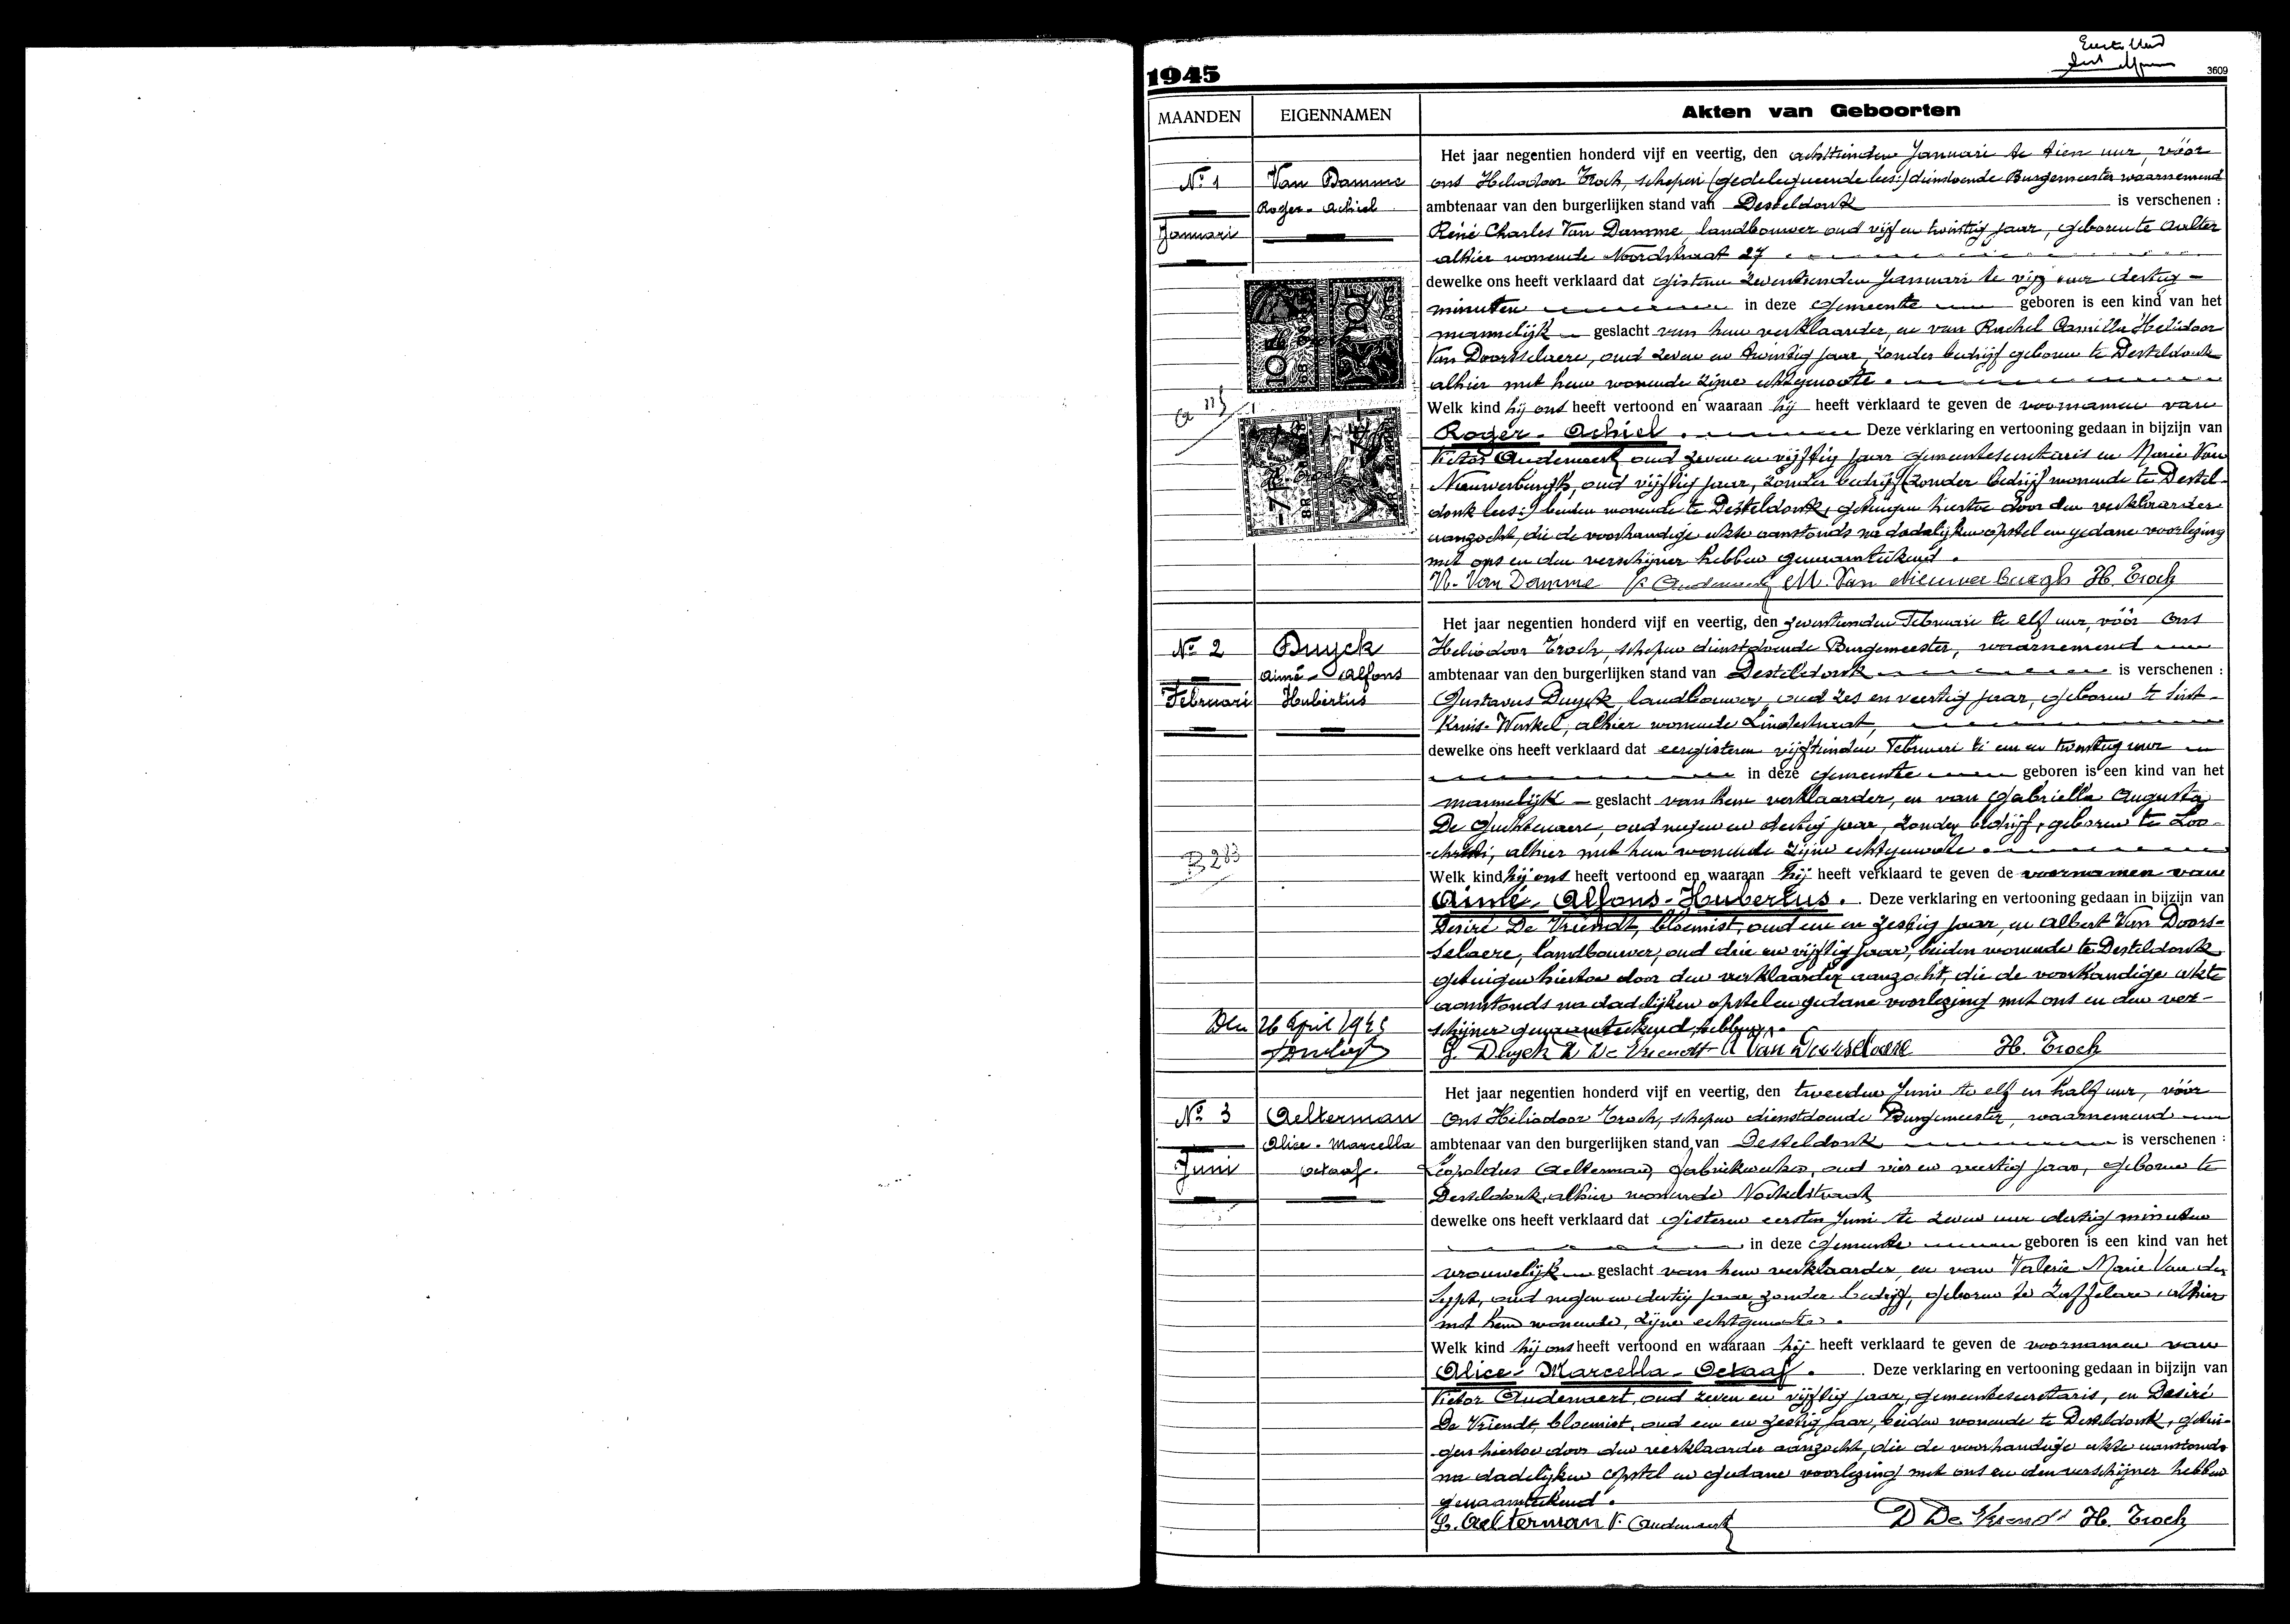 1945
3609
MAANDEN
EIGENNAMEN
Akten van Geboorten
No 1
Januari
Van Damme
Roger - Achiel
Het jaar negentien honderd vijf en veertig, den achttienden Januari te tien uur, vóór
ons Heliodoor Troch, schepen (gedelegueerde lees:) dienstdoende Burgemeester waarnemend
ambtenaar van den burgerlijken stand van Desteldonk is verschenen :
René Charles Van Damme, landbouwer oud vijf en twintig jaar, geboren te Aalter
alhier wonende Noordstraat 27
dewelke ons heeft verklaard dat gisteren zeventienden Januari te vijf uur dertig
minuten in deze gemeente geboren is een kind van het
mannelijk geslacht van hem verklaarder, en van Rachel Camilla Heliodoor
Van Doorsselaere, oud zeven en twintig jaar, zonder bedrijf geboren te Desteldonk
alhier met hem wonende zijne echtgenoote.
Welk kind hij ons heeft vertoond en waaraan hij heeft verklaard te geven de voornamen van
Roger - Achiel. Deze verklaring en vertooning gedaan in bijzijn van
Victor Audenaert oud zeven en vijftig jaar gemeentesecretaris en Marie Van
Nieuwerburgh, oud vijftig jaar, zonder bedrijf (zonder bedrijf wonende te Destel-
donk lees:) beiden wonende te Desteldonk, getuigen hiertoe door den verklaarder
aanzocht, die de voorhandige akte aanstonds na dadelijken opstel en gedane voorlezing
met ons en den verschijner hebben genaamteekend.
Van Damme Audenaert M. Van Nieuwerburgh H. Troch
No 2
Februari
Duyck
Aimé - Alfons
Hubertus
B 283
Den 26 April 1945
Het jaar negentien honderd vijf en veertig, den zeventienden Februari te elf uur, vóór ons
Heliodoor Troch, schepen dienstdoende Burgemeester, waarnemend
ambtenaar van den burgerlijken stand van Desteldonk is verschenen :
Gustavus Duyck, landbouwer, oud zes en veertig jaar, geboren te Sint-
Kruis-Winkel, alhier wonende Lindestraat,
dewelke ons heeft verklaard dat eergisteren vijftienden Februari te een en twintig uur
in deze gemeente geboren is een kind van het
mannelijk geslacht van hem verklaarder, en van Gabriella Augusta
De Guchtenaere, oud negen en dertig jaar, zonder bedrijf, geboren te Loo-
christi, alhier met hem wonende zijne echtgenoote.
Welk kind hij ons heeft vertoond en waaraan hij heeft verklaard te geven de voornamen van
Aimé - Alfons - Hubertus. Deze verklaring en vertooning gedaan in bijzijn van
Desiré De Vriendt, bloemist, oud een en zestig jaar, en Albert Van Doors-
selaere, landbouwer, oud drie en vijftig jaar, beiden wonende te Desteldonk
getuigen hiertoe door den verklaarder aanzocht, die de voorhandige akte
aanstonds na dadelijken opstel en gedane voorlezing met ons en den ver-
schijner genaamteekend hebben.
G. Duyck D De Vriendt A Van Doorselaere H. Troch
No 3
Juni
Aelterman
Alice - Marcella
Octaaf.
Het jaar negentien honderd vijf en veertig, den tweeden Juni te elf en half uur, vóór
ons Heliodoor Troch, schepen dienstdoende Burgemeester, waarnemend
ambtenaar van den burgerlijken stand van Desteldonk is verschenen :
Leopoldus Aelterman, fabriekwerker, oud vier en veertig jaar, geboren te
Desteldonk, alhier wonende
dewelke ons heeft verklaard dat gisteren eersten Juni te zeven uur dertig minuten
in deze gemeente geboren is een kind van het
vrouwelijk geslacht van hem verklaarder, en van Valerie Marie Van der
oud negen en dertig jaar zonder bedrijf, geboren te Zaffelare, alhier
met hem wonende, zijne echtgenoote.
Welk kind hij ons heeft vertoond en waaraan hij heeft verklaard te geven de voornamen van
Alice - Marcella - Octaaf. Deze verklaring en vertooning gedaan in bijzijn van
Victor Audenaert, oud zeven en vijftig jaar, gemeentesecretaris, en Desiré
De Vriendt, bloemist, oud een en zestig jaar, beiden wonende te Desteldonk, getui-
gen hiertoe door den verklaarder aanzocht, die de voorhandige akte aanstonds
na dadelijken opstel en gedane voorlezing met ons en den verschijner hebben
genaamteekend.
L. Aelterman V. Audenaert D De Vriendt H. Troch